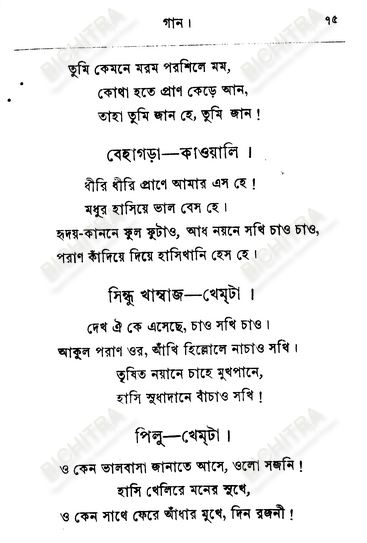 গান ।
৭৫
তুমি কেমনে মরম পরশিলে মম,
কোথা হতে প্রাণ কেড়ে আন,
তাহা তুমি জান হে, তুমি জান !
বেহাগড়া—কাওয়ালি ।
ধীরি ধীরি প্রাণে আমার এস হে !
মধুর হাসিয়ে ভাল বেস হে ।
হৃদয়-কাননে ফুল ফুটাও, আধ নয়নে সখি চাও চাও,
পরাণ কাঁদিয়ে দিয়ে হাসিখানি হেস হে ।
সিন্ধু খাম্বাজ—খেম্‌টা ।
দেখ ঐ কে এসেছে, চাও সখি চাও ।
আকুল পরাণ ওর, আঁখি হিল্লোলে নাচাও সখি ।
তৃষিত নয়ানে চাহে মুখপানে,
হাসি সুধাদানে বাঁচাও সখি !
পিলু—খেম্‌টা ।
ও কেন ভালবাসা জানাতে আসে, ওলো সজনি !
হাসি খেলিরে মনের সুখে,
ও কেন সাথে ফেরে আঁধার মুখে, দিন রজনী !
BICHITRA
BICHITRA
BICHITRA
BICHITRA
BICHITRA
BICHITRA